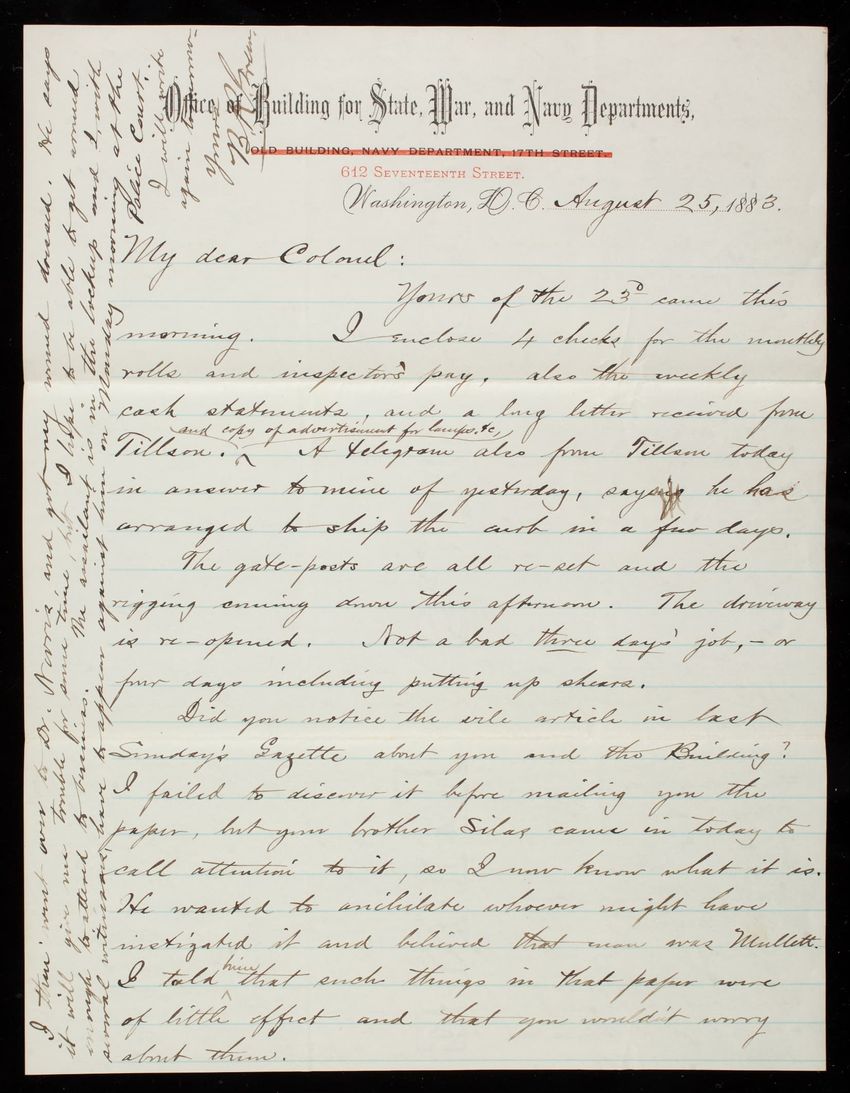 Office of Building for State, War, and Navy Departments,
OLD BUILDING, NAVY DEPARTMENT, 17TH STREET.
612 SEVENTEENTH STREET.
Washington, D.C. August 25, 1883.
My dear Colonel:
Yours of the 23d came this
morning. I enclose 4 checks for the monthly
rolls and inspector's pay, also the weekly
cash statements, and a long letter received from
and copy of advertisment for lamps &c,
Tillson. A telegram also from Tillson today
in answer to mine of yesterday, saying he has
arranged to ship the curb in a few days.
The gate-posts are all re-set and the
rigging coming down this afternoon. The driveway
is re-opened. Not a bad three days' job, - or
four days including putting up shears.
Did you notice the vile article in last
Sunday's Gazette about you and the Building?
I failed to discover it before mailing you the
paper, but your brother Silas came in today to
call attention to it, so I now know what it is.
He wanted to anihilate whoever might have
instigated it and believed that man was Mullett.
I told him that such things in that paper were
of little effect and that you wouldn't worry
about them.
I then went over to Dr. Norris and got my wound dressed. He says
it will give me trouble for some time, but I hope to be able to get around
enough to attend to business. The assailant is in the lockup and I, with
several witnesses, have to appear against him on Monday morning at the
Police Court.
I will write
again tomorrow-
Yours